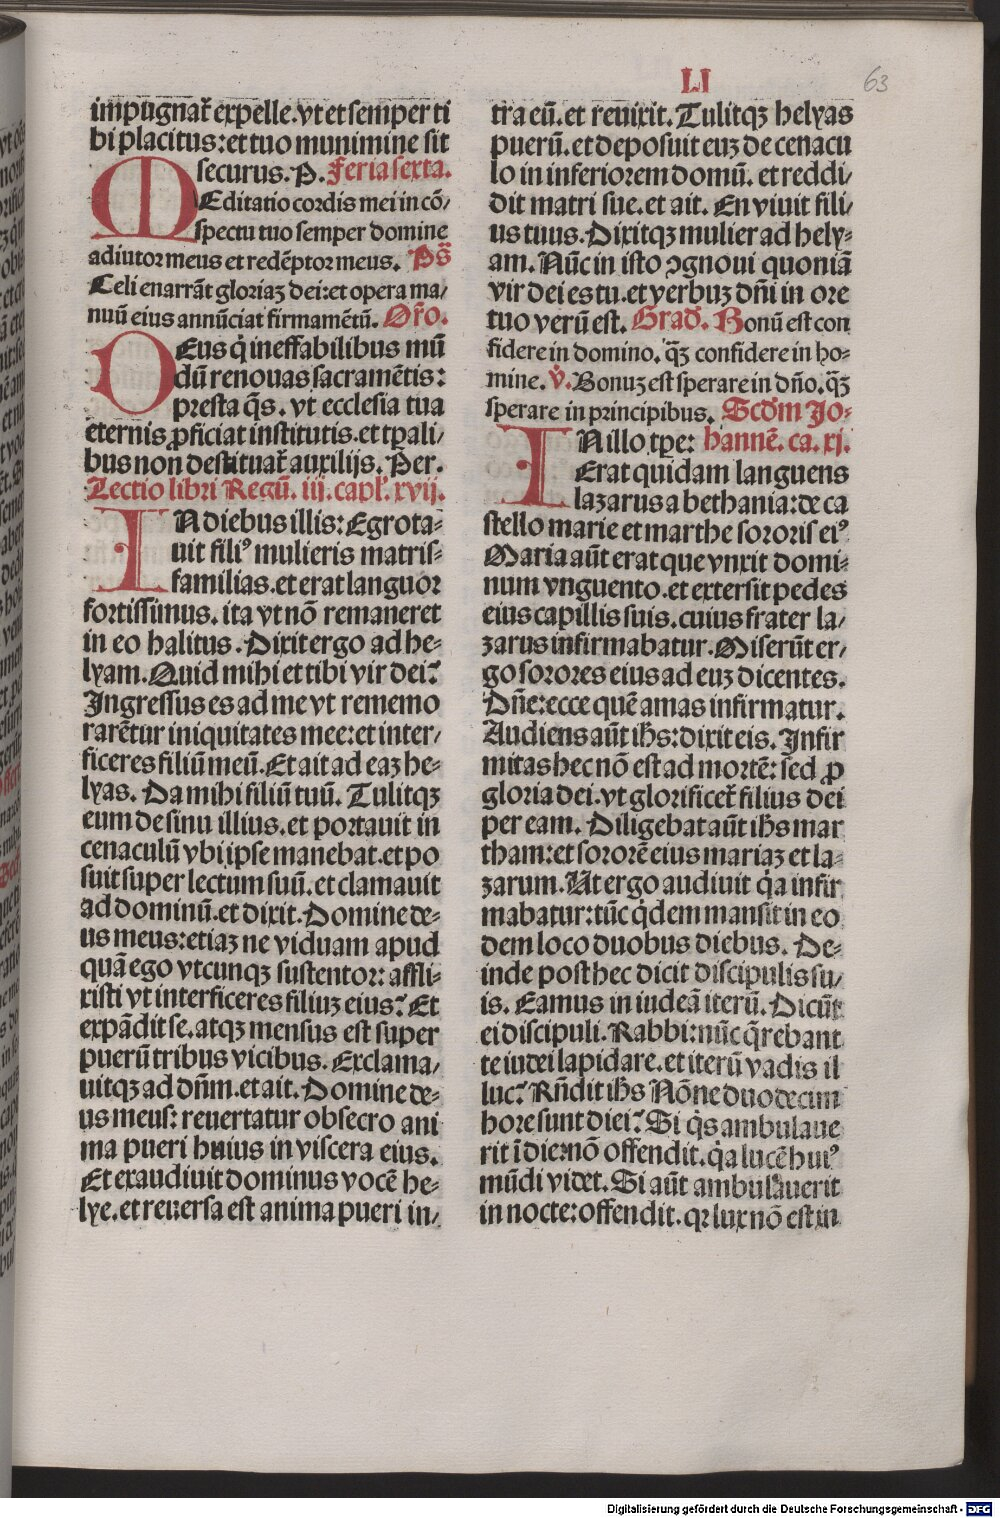 LI
63
impugnat᷑ expelle. vt et semper ti
bi placitus: et tuo munimine sit
securus. P. Feria sexta.
MEditatio cordis mei in cō/
spectu tuo semper domine
adiutor meus et redēptor meus. Ps̄
Celi enarrāt gloriaꝫ dei: et opera ma/
nuū eius annūciat firmamētū. Or̄o.
DEus q̇ ineffabilibus mū
dū renouas sacramētis:
presta q̄s. vt ecclesia tua
eternis ꝓficiat institutis. et tꝑali/
bus non destituat᷑ auxilijs. Per.
Lectio libri Regū. iij. capl'. xvij.
IN diebus illis: Egrota-
uit filiꝰ mulieris matris-
familias. et erat languor
fortissimus. ita vt nō remaneret
in eo halitus. Dixit ergo ad he-
lyam. Quid mihi et tibi vir dei?
Ingressus es ad me vt rememo
rarētur iniquitates mee: et inter/
ficeres filiū meū. Et ait ad eaꝫ he-
lyas. Da mihi filiū tuū. Tulitqꝫ
eum de sinu illius. et portauit in
cenaculū vbi ipse manebat. et po
suit super lectum suū. et clamauit
ad dominū. et dixit. Domine de-
us meus: etiaꝫ ne viduam apud
quā ego vtcunqꝫ sustentor: affli-
xisti vt interficeres filiuꝫ eius? Et
expādit se. atqꝫ mensus est super
puerū tribus vicibus. Exclama/
uitqꝫ ad dn̄m. et ait. Domine de-
us meus: reuertatur obsecro ani
ma pueri huius in viscera eius.
Et exaudiuit dominus vocē he-
lye. et reuersa est anima pueri in/
tra eū. et reuixit. Tulitqꝫ helyas
puerū. et deposuit euꝫ de cenacu
lo in inferiorem domū. et reddi/
dit matri sue. et ait. En viuit fili/
us tuus. Dixitqꝫ mulier ad hely-
am. Nūc in isto ꝯgnoui quoniā
vir dei es tu. et verbuꝫ dn̄i in ore
tuo verū est. Grad̄. Bonū est con
fidere in domino. q̄ꝫ confidere in ho-
mine. v̇. Bonuꝫ est sperare in dn̄o. q̄ꝫ
sperare in principibus. Scd̄m Jo-
IN illo tꝑe: hannē. ca. xj.
Erat quidam languens
lazarus a bethania: de ca
stello marie et marthe sororis eiꝰ
Maria aūt erat que vnxit domi-
num vnguento. et extersit pedes
eius capillis suis. cuius frater la/
zarus infirmabatur. Miserūt er/
go sorores eius ad euꝫ dicentes.
Dn̄e: ecce quē amas infirmatur.
Audiens aūt ih̄s: dixit eis. Infir
mitas hec nō est ad mortē: sed ꝓ
gloria dei. vt glorificet᷑ filius dei
per eam. Diligebat aūt ih̄s mar
tham: et sororē eius mariaꝫ et la-
zarum. Ut ergo audiuit q̇a infir
mabatur: tūc q̇dem mansit in eo
dem loco duobus diebus. De-
inde post hec dicit discipulis su/
is. Eamus in iudeā iterū. Dicūt
ei discipuli. Rabbi: nūc q̄rebant
te iudei lapidare. et iterū vadis il
luc? Rn̄dit ih̄s Nōne duodecim
hore sunt diei? Si q̇s ambulaue
rit ī die: nō offendit. q̇a lucē huiꝰ
mūdi videt. Si aūt ambulauerit
in nocte: offendit. qꝛ lux nō est in
Digitalisierung gefördert durch die Deutsche Forschungsgemeinschaft - DFG